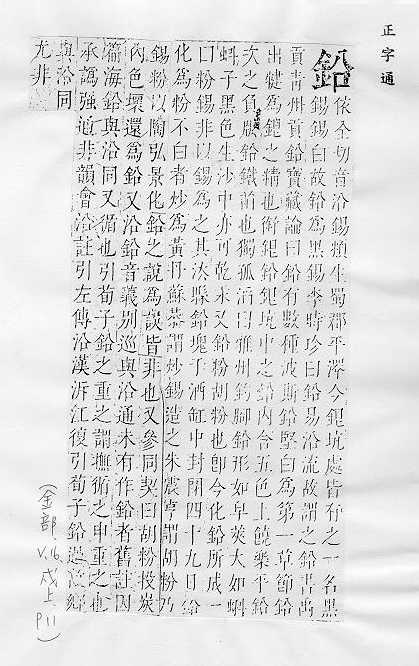 正字通
鉛
依全切音沿錫類生蜀郡平澤今銀坑處皆有之一名黑
錫錫白故鉛爲黑錫李時珍曰鉛易沿流故謂之鉛書禹
貢靑州貢鉛寶藏論曰鉛有數種波斯鉛堅白爲第一草節鉛
出犍爲銀之精也銜銀鉛銀坑中之鉛內含五色上饒樂平鉛
次之負版鉛鐵苗也獨孤滔曰雅州鈎脚鉛形如皁莢大如蝌
蚪子黑色生沙中亦可乾汞又鉛粉胡粉也卽今化鉛所成一
曰粉錫非以錫爲之其法縣鉛塊于酒缸中封閉四十九日鉛
化爲粉不白者炒爲黃丹蘇恭謂炒錫造之朱震亨謂胡粉乃
錫粉以陶弘景化鉛之說爲誤皆非也又參同契曰胡粉投炭
內色壞還爲鉛又沿鉛音義别巡與沿通未有作鉛者舊註因
海鉛與沿同又循也引荀子鉛之重之謂撫循之申重之也
承譌強非韻會沿註引左傳沿漢泝江復引荀子鉛過故鄉
與沿同
尤非
(金部
V.16,
戌上
P11)